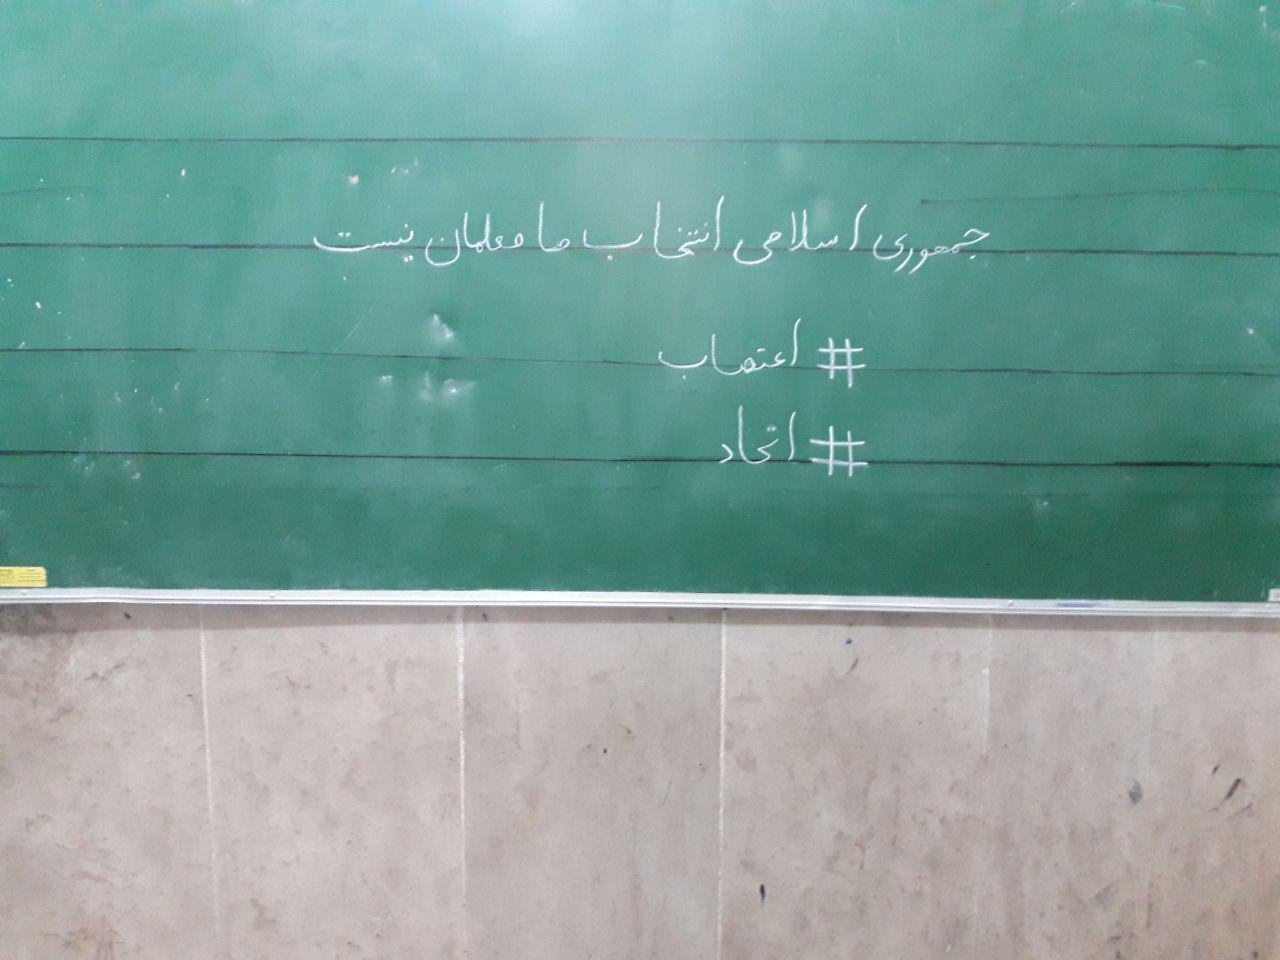 جمهوری اسلامی انتخاب ما معلمان نیست
# اعتصاب
# اتحاد